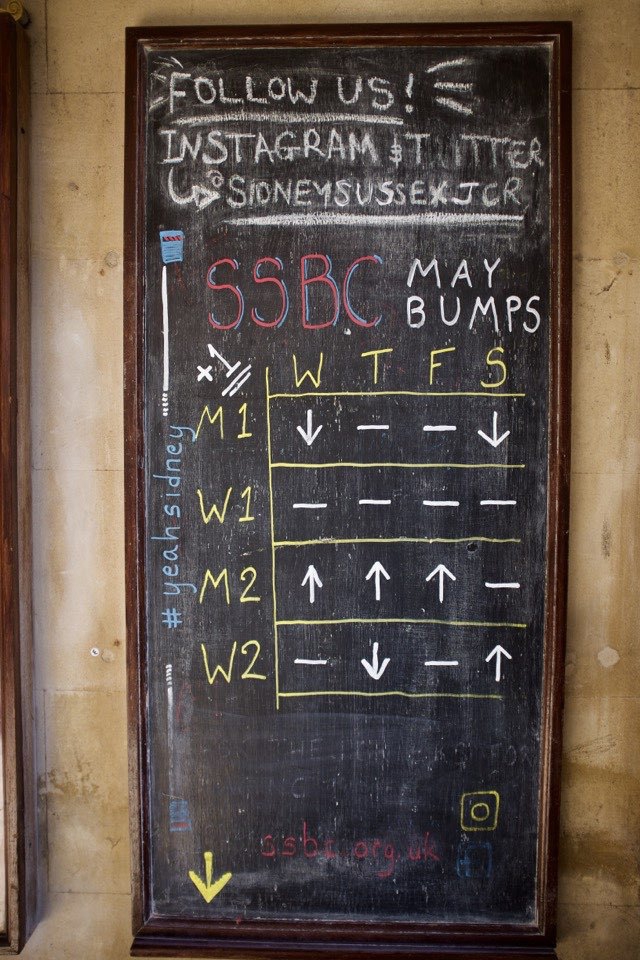 FOLLOW US!
INSTAGRAM & TWITTER
@SIDNEYSUSSEXJCR
SSBC MAY BUMPS
x1
W T F S
M1 ↓ — — ↓
W1 — — — —
M2 ↑ ↑ ↑ —
W2 — ↓ — ↑
#yeahsidney
ssbc.org.uk